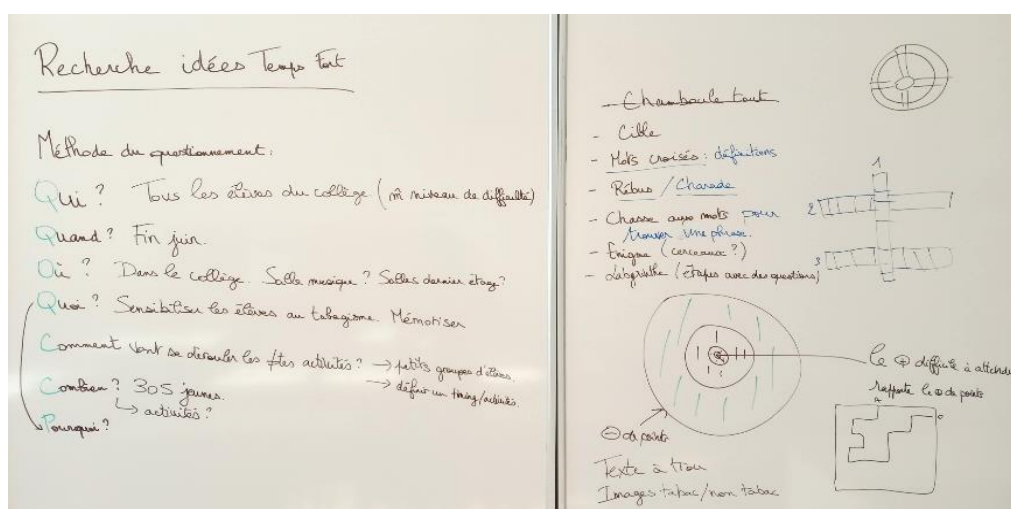 Recherche idées Temps Fort
Méthode du questionnement :
Qui ? Tous les élèves du collège (m̂ niveau de difficulté)
Quand ? Fin juin.
Où ? Dans le collège. Salle musique ? Salles dernier étage ?
Quoi ? Sensibiliser les élèves au tabagisme. Mémoriser
Comment vont se dérouler les ≠tes activités ? → petits groupes d'élèves.
→ définir un timing/activités.
Combien ? 305 jeunes.
↳ activités ?
Pourquoi ?
- Chamboule tout
- Cible
- Mots croisés : définitions
- Rébus / Charade
- Chasse aux mots pour
trouver une phrase.
- Enigme (cerceaux ?)
- Labyrinthe (étapes avec des questions)
1
2
3
le ⊕ difficile à atteindre
rapporte le ⊕ de points
⊖ de points
Texte à trou
Images tabac/non tabac